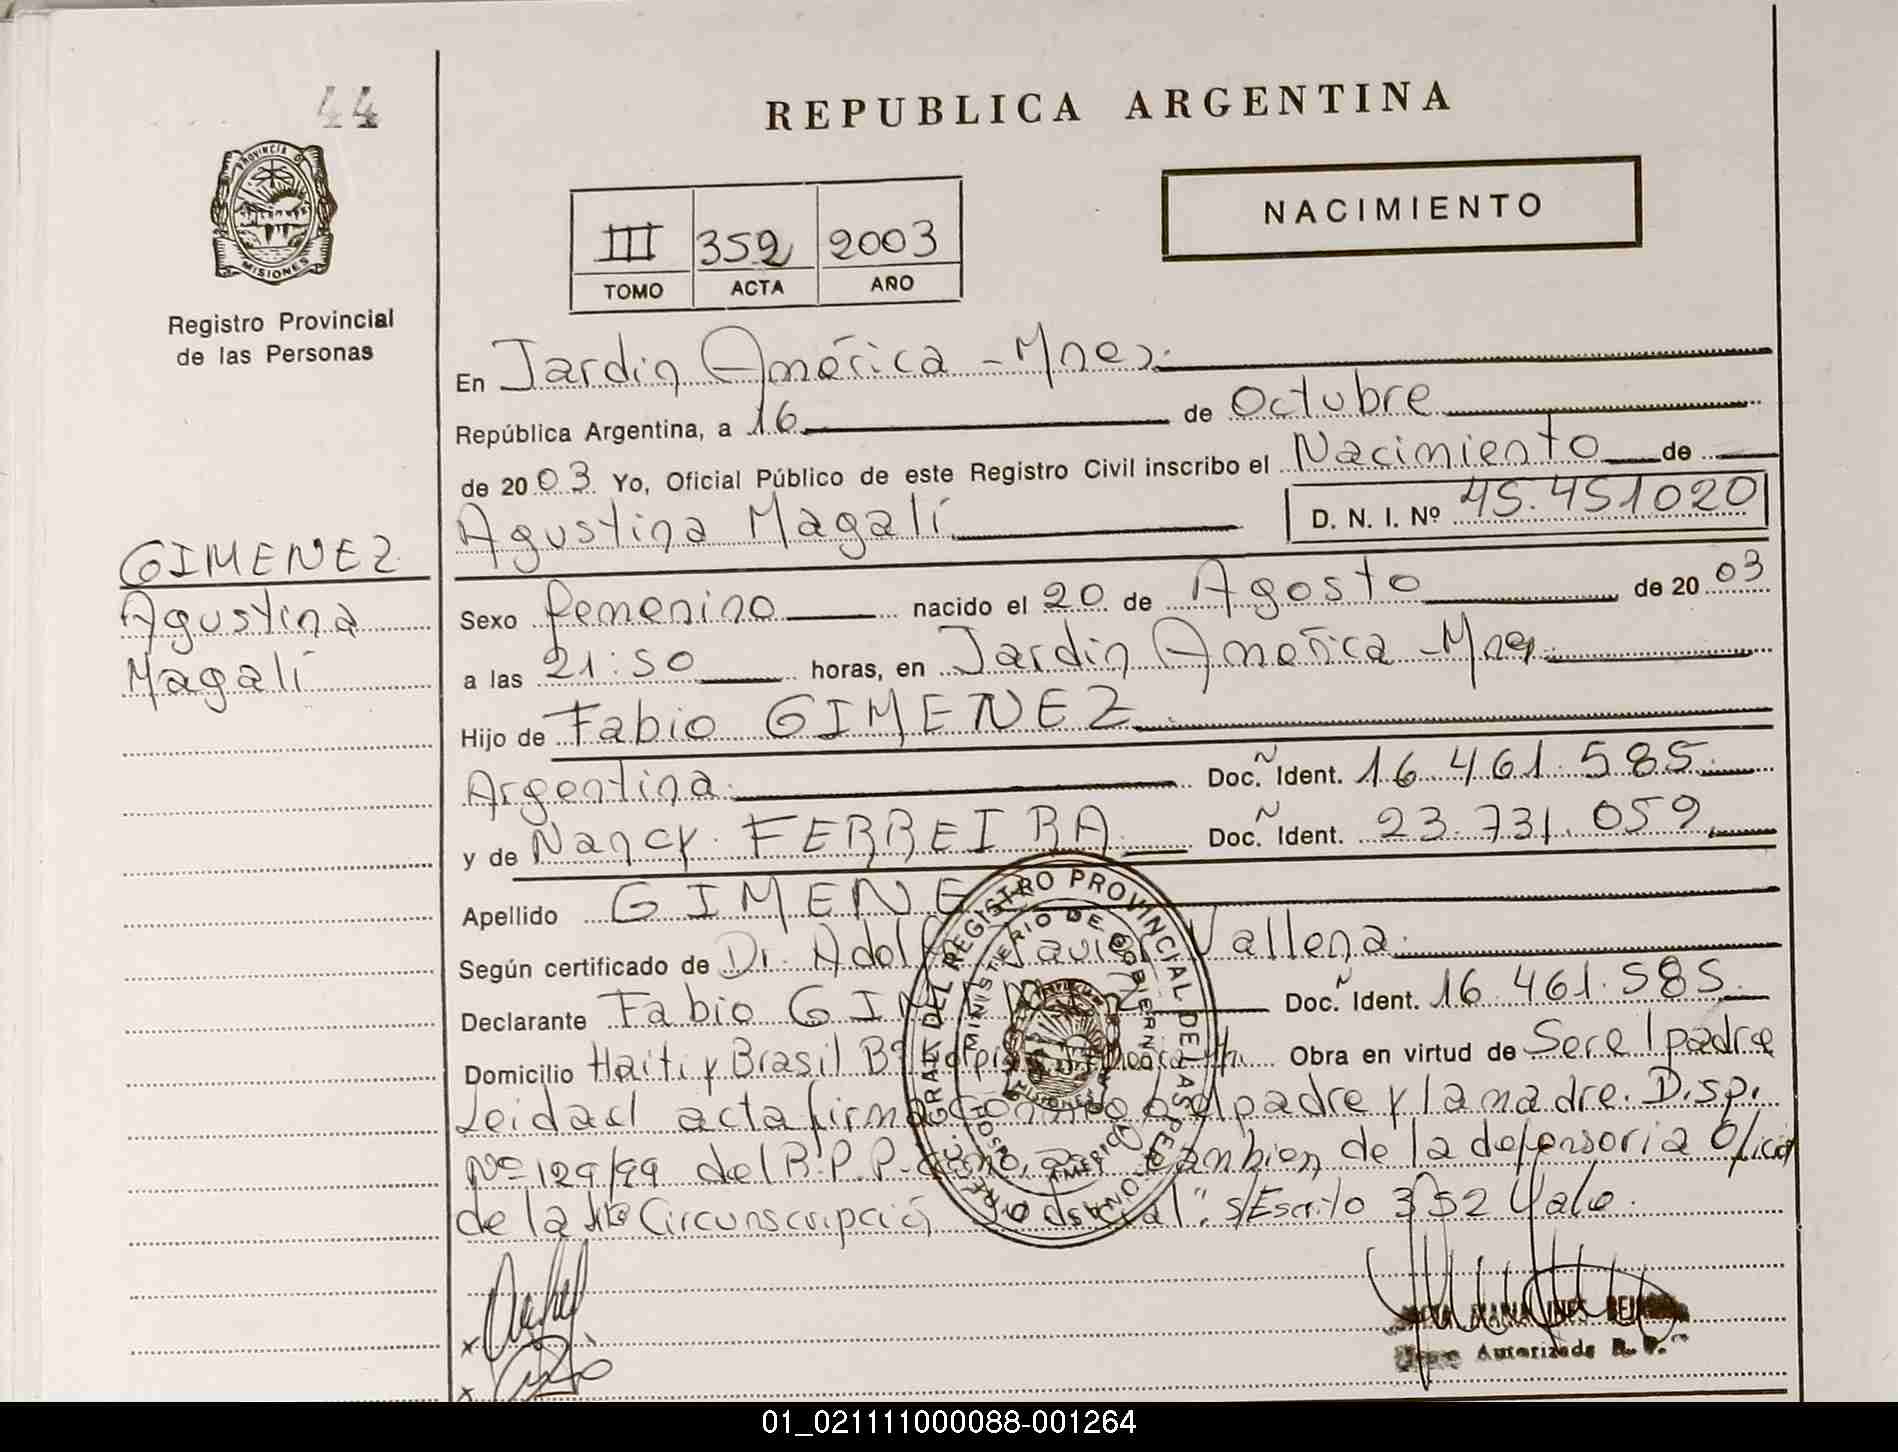 44
REPUBLICA ARGENTINA
PROVINCIA D
MISIONES
Registro Provincial
de las Personas
NACIMIENTO
III 352 2003
TOMO ACTA AÑO
En Jardin América - Mnes.
República Argentina, a 16 de Octubre
de 2003 Yo, Oficial Público de este Registro Civil inscribo el Nacimiento de
Agustina Magalí D. N. I. Nº 45.451020
GIMENEZ
Agustina
Magalí
Sexo femenino nacido el 20 de Agosto de 2003
a las 21:50 horas, en Jardin América - Mnes.
Hijo de Fabio GIMENEZ
Argentina. Doc. Ident. 16.461.585.
y de Nancy FERREIRA Doc. Ident. 23.731.059
Apellido GIMENE
Según certificado de Dr. Adolfo Javier Vallena.
Declarante Fabio GIMENEZ Doc. Ident. 16.461.585.
Domicilio Haiti y Brasil Bº Obra en virtud de Ser el padre
Leida el acta firma el padre y la madre. Disp.
Nº 129/99 del R.P.P. tambien de la defensoria Oficial
de la Circunscripción s/Escrito 352 Vale.
REGISTRO PROVINCIAL DE LAS PERSONAS
MINISTERIO DE GOBIERNO
MISIONES
HOSP. AMERICA
MARIA INES
Autorizada R. P.
01_021111000088-001264